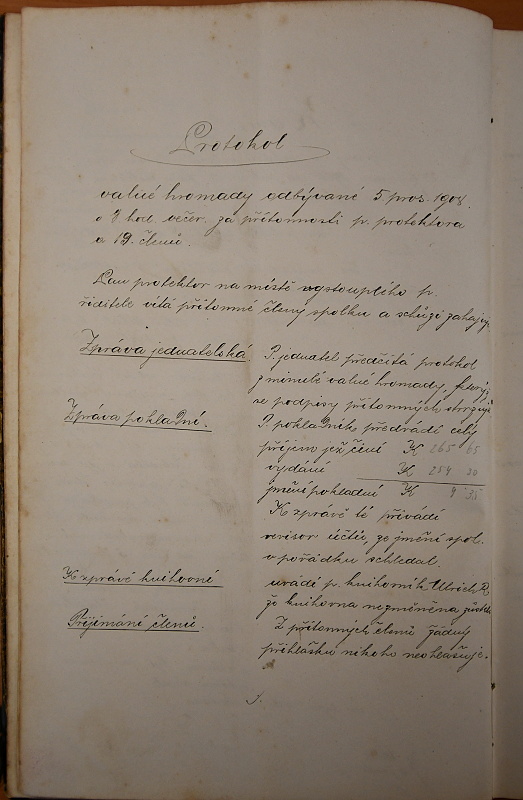 Protokol
valné hromady odbývané 5 pros. 1908.
o 8 hod. večer. za přítomnosti p. protektora
a 19. členů.
Pan protektor na místě vystouplého p.
ředitele vítá přítomné členy spolku a schůzi zahajuje.
Zpráva jednatelská.
P. jednatel předčítá protokol
z minulé valné hromady, který
se podpisy přítomných stvrzuje
Zpráva pokladní.
P. pokladník předvádí celý
příjem jež činí K 265 65
vydání K 254 30
jmění pokladní K 9 35
K zprávě té přivádí
revisor účtů, že jmění spol.
v pořádku schledal.
K zprávě knihovní
uvádí p. knihovník Ulrich R.
že knihovna nezměněna
Přijímání členů.
Z přítomných členů žádný
přihlášku nikoho neohlašuje.